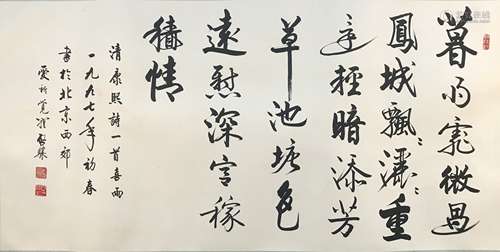 暮雨霏微過
鳳城飄〻灑〻重
還輕暗添芳
草池塘色
遠慰深宮稼
穡情
清康熙詩一首喜雨
一九九七年初春
書於北京西郊
愛新覺羅啟